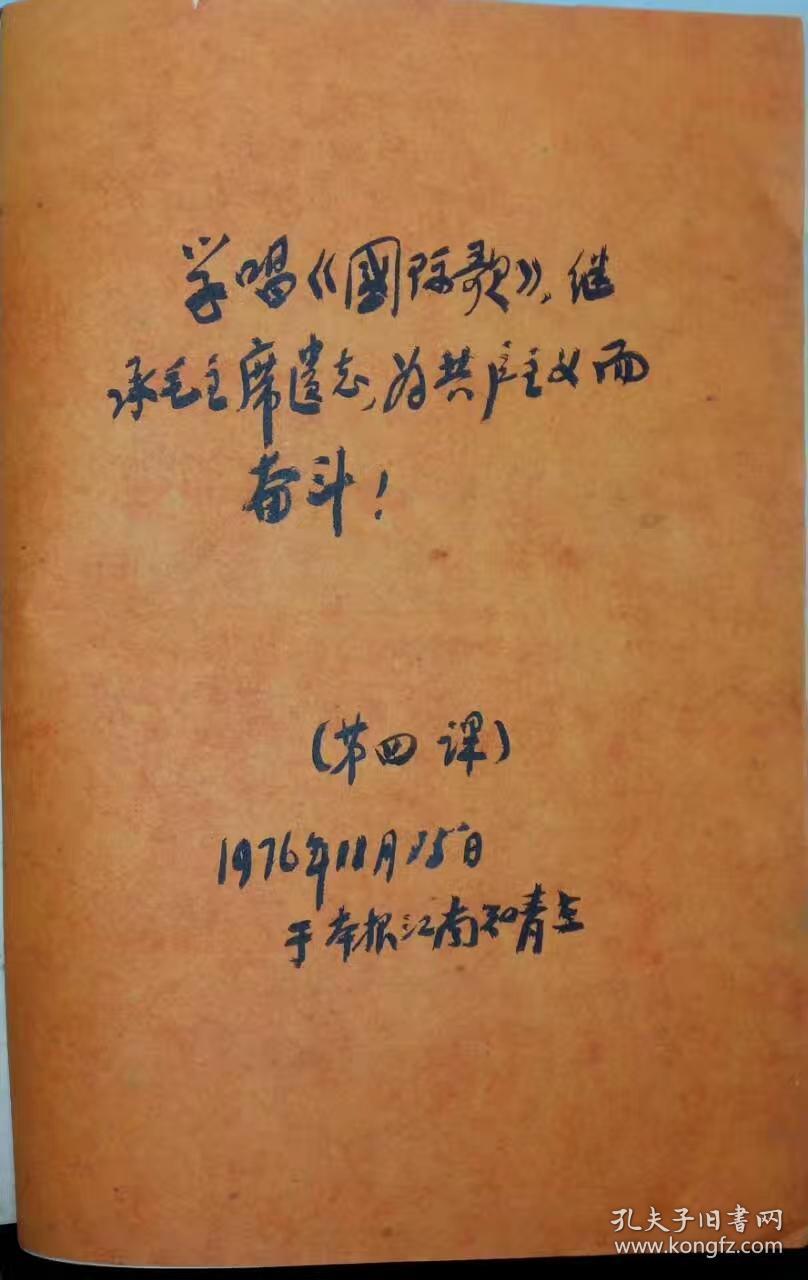 学唱《國际歌》,继
承毛主席遗志,为共产主义而
奋斗!
(第四课)
1976年11月15日
于 江南知青点
孔夫子旧書网
www.kongfz.com